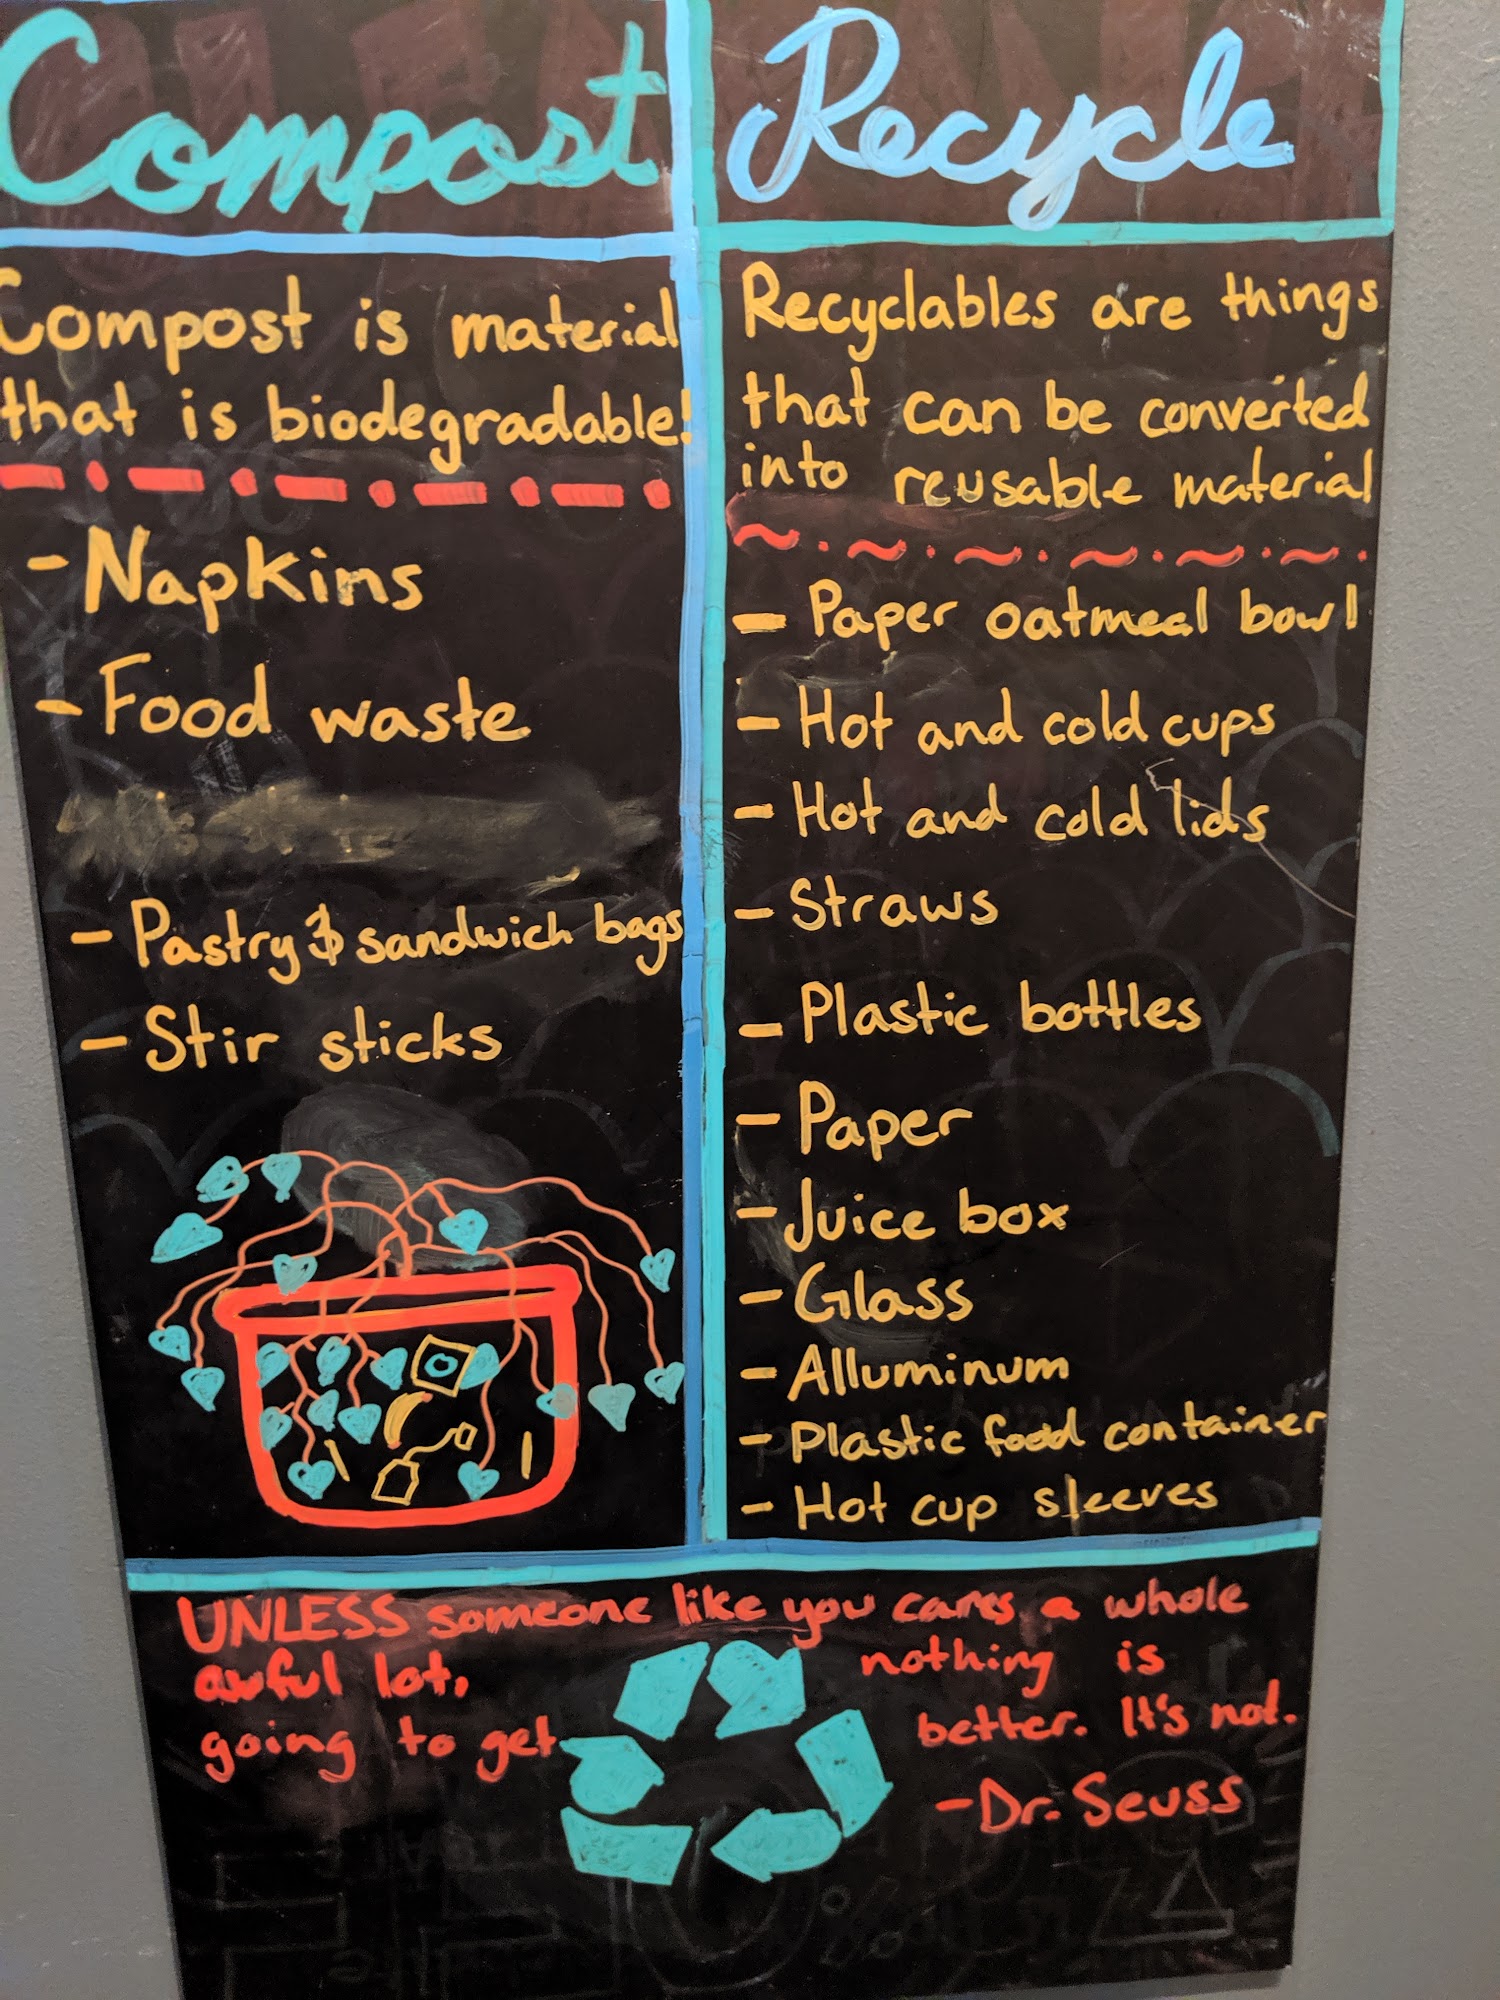 Compost
Compost is material
that is biodegradable!
- Napkins
- Food waste
- Pastry & sandwich bags
- Stir sticks
Recycle
Recyclables are things
that can be converted
into reusable material
- Paper oatmeal bowl
- Hot and cold cups
- Hot and cold lids
- Straws
- Plastic bottles
- Paper
- Juice box
- Glass
- Alluminum
- Plastic food container
- Hot cup sleeves
UNLESS someone like you cares a whole
awful lot, nothing is
going to get better. It's not.
-Dr. Seuss